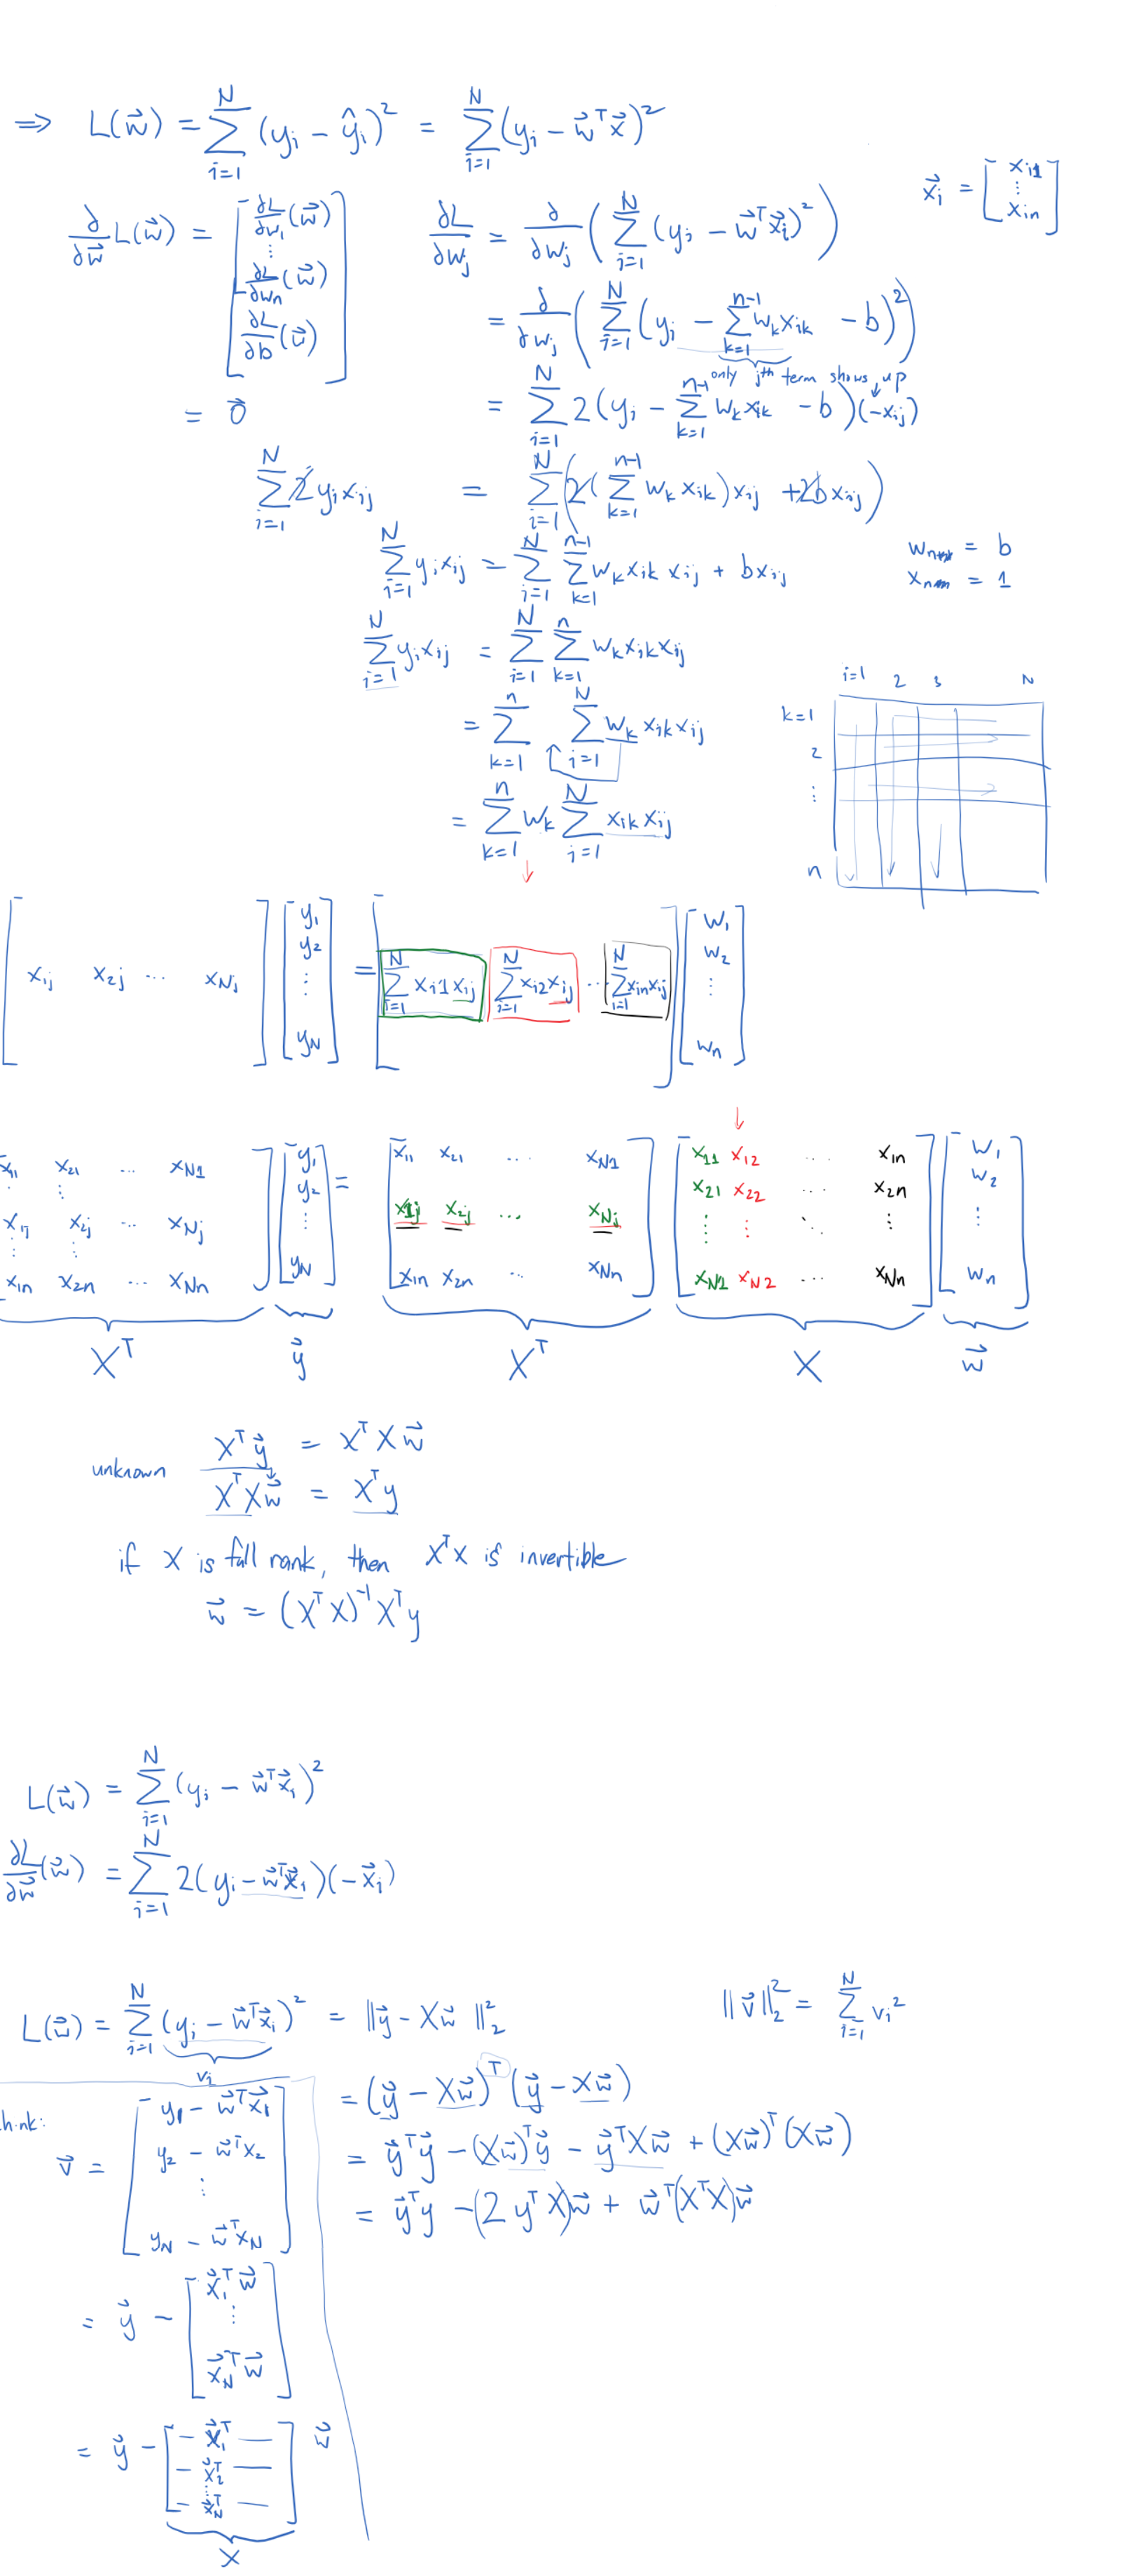 ⇒ L(w⃗) = ∑_{i=1}^{N} (y_i − ŷ_i)² = ∑_{i=1}^{N} (y_i − w⃗ᵀx⃗)²
x⃗_i = [x_{i1} ⋮ x_{in}]
∂/∂w⃗ L(w⃗) = [∂L/∂w_1 (w⃗) ⋮ ∂L/∂w_n (w⃗) ∂L/∂b (w⃗)]
∂L/∂w_j = ∂/∂w_j (∑_{i=1}^{N} (y_i − w⃗ᵀx⃗_i)²)
= ∂/∂w_j (∑_{i=1}^{N} (y_i − ∑_{k=1}^{n-1} w_k x_{ik} − b)²)
only jth term shows up
= 0⃗
= ∑_{i=1}^{N} 2(y_i − ∑_{k=1}^{n-1} w_k x_{ik} − b)(−x_{ij})
∑_{i=1}^{N} 2 y_i x_{ij} = ∑_{i=1}^{N} (2(∑_{k=1}^{n-1} w_k x_{ik}) x_{ij} + 2b x_{ij})
∑_{i=1}^{N} y_i x_{ij} = ∑_{i=1}^{N} ∑_{k=1}^{n-1} w_k x_{ik} x_{ij} + b x_{ij}
= b
= 1
∑_{i=1}^{N} y_i x_{ij} = ∑_{i=1}^{N} ∑_{k=1}^{n} w_k x_{ik} x_{ij}
= ∑_{k=1}^{n} ∑_{i=1}^{N} w_k x_{ik} x_{ij}
= ∑_{k=1}^{n} w_k ∑_{i=1}^{N} x_{ik} x_{ij}
i=1 2 3 N
k=1
2
⋮
n
[x_{1j} x_{2j} ... x_{Nj}] [y_1 y_2 ⋮ y_N] = [∑_{i=1}^{N} x_{i1} x_{ij} ∑_{i=1}^{N} x_{i2} x_{ij} ... ∑_{i=1}^{N} x_{in} x_{ij}] [w_1 w_2 ⋮ w_n]
x_{11} x_{21} ... x_{N1} y_1 = x_{11} x_{21} .... x_{N1} x_{11} x_{12} .... x_{1n} w_1
⋮ ⋮ y_2 x_{21} x_{22} ... x_{2n} w_2
x_{1j} x_{2j} ... x_{Nj} ⋮ x_{1j} x_{2j} ... x_{Nj} ⋮ ⋮ ⋱ ⋮ ⋮
⋮ ⋮
x_{1n} x_{2n} ... x_{Nn} y_N x_{1n} x_{2n} ... x_{Nn} x_{N1} x_{N2} ... x_{Nn} w_n
Xᵀ y⃗ Xᵀ X w⃗
Xᵀy⃗ = XᵀXw⃗
unknown XᵀXw⃗ = Xᵀy
if X is full rank, then XᵀX is invertible
w⃗ = (XᵀX)⁻¹Xᵀy
L(w⃗) = ∑_{i=1}^{N} (y_i − w⃗ᵀx⃗_i)²
∂L/∂w⃗ (w⃗) = ∑_{i=1}^{N} 2(y_i − w⃗ᵀx⃗_i)(−x⃗_i)
L(w⃗) = ∑_{i=1}^{N} (y_i − w⃗ᵀx⃗_i)² = ‖y⃗ − Xw⃗‖₂²
v_i
‖v⃗‖₂² = ∑_{i=1}^{N} v_i²
= (y⃗ − Xw⃗)ᵀ(y⃗ − Xw⃗)
= y⃗ᵀy⃗ − (Xw⃗)ᵀy⃗ − y⃗ᵀXw⃗ + (Xw⃗)ᵀ(Xw⃗)
= y⃗ᵀy − (2yᵀX)w⃗ + w⃗ᵀ(XᵀX)w⃗
hink:
v⃗ = [y_1 − w⃗ᵀx⃗_1 y_2 − w⃗ᵀx_2 ⋮ y_N − w⃗ᵀx_N]
= y⃗ − [x⃗_1ᵀw⃗ ⋮ x⃗_Nᵀw⃗]
= y⃗ − [— x⃗_1ᵀ — — x⃗_2ᵀ — ⋮ — x⃗_Nᵀ —] w⃗
X